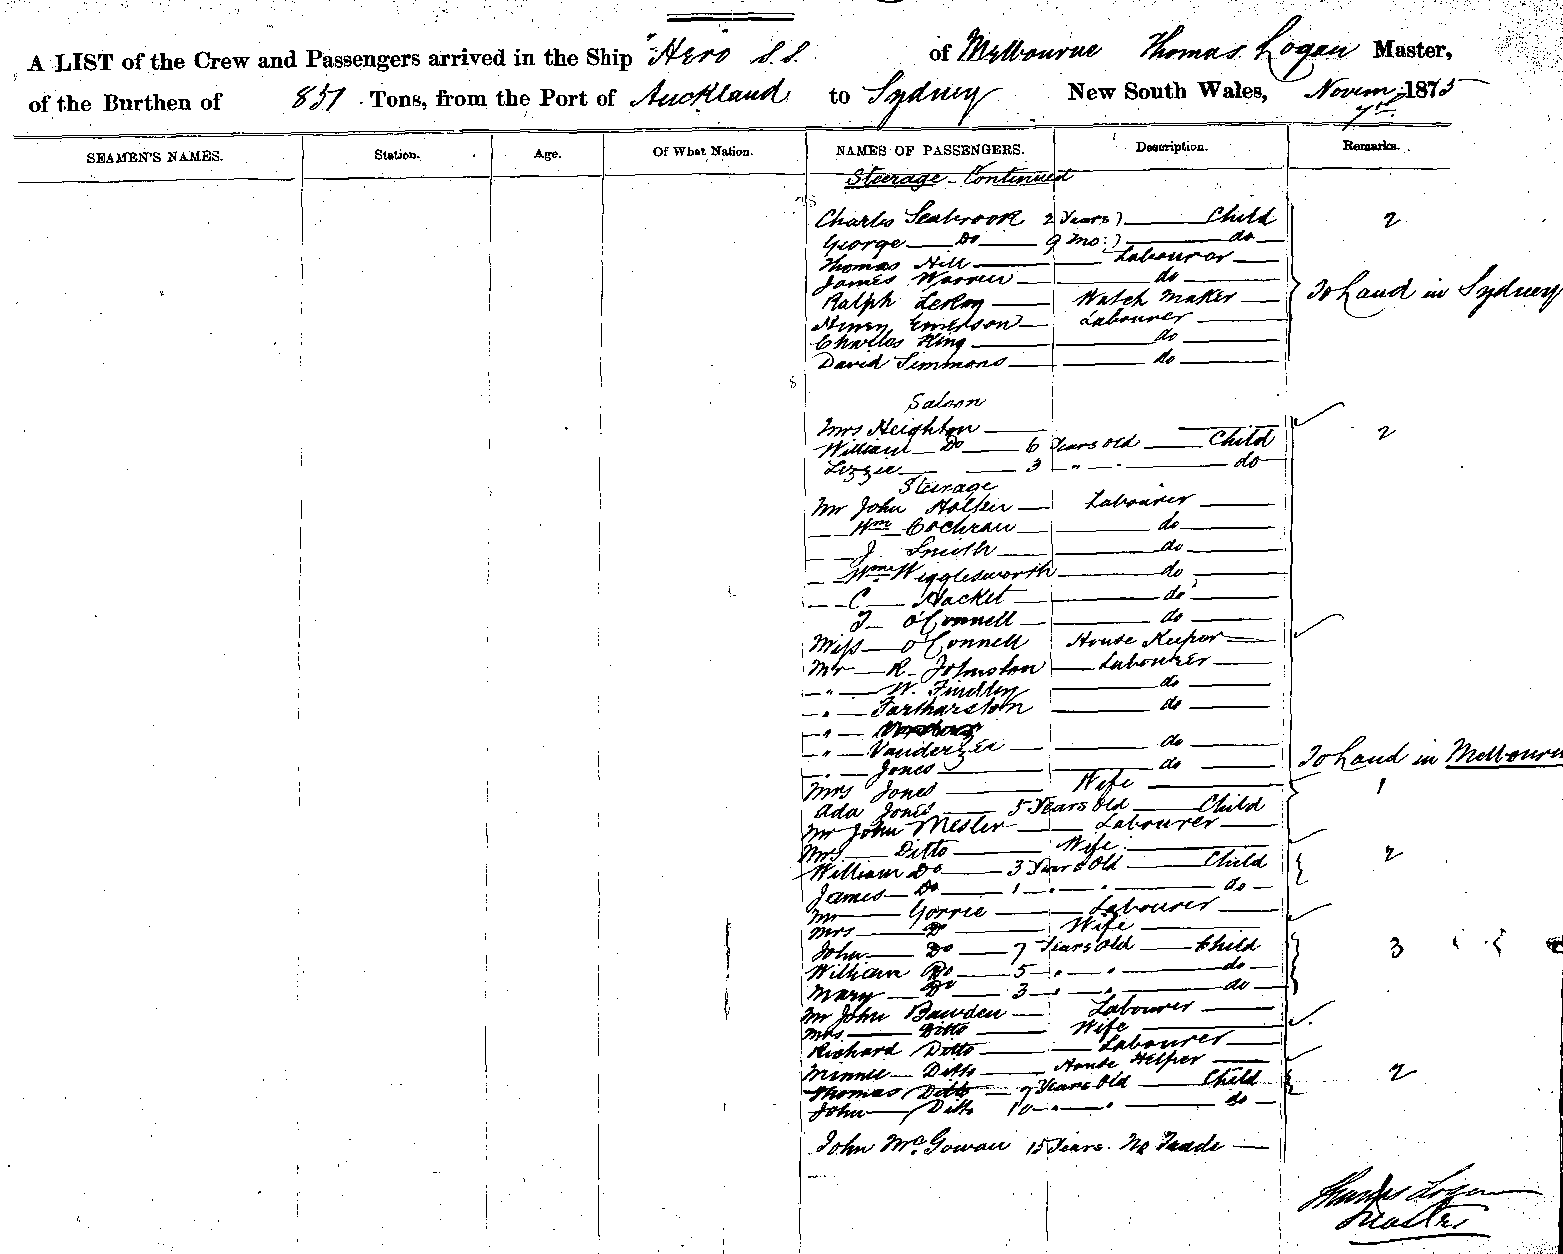 A LIST of the Crew and Passengers arrived in the Ship "Hero S.S. of Melbourne Thomas Logan Master,
of the Burthen of 851 Tons, from the Port of Auckland to Sydney New South Wales, Novem 7th 1875
SEAMEN'S NAMES. Station. Age. Of What Nation. NAMES OF PASSENGERS. Description. Remarks.
Steerage Continued
Charles Seabrook 2 Years) Child 2
George Do 9 Mo:) do
Thomas Hill Labourer
James Warren do
Ralph LeRoy Watch Maker To Land in Sydney
Henry Emerson Labourer
Charles King do
David Simmons do
Saloon
Mrs Heighton
William Do 6 Years Old Child 2
Lizzie 3 " " do
Steerage
Mr John Holker Labourer
Wm Cochran do
J Smith do
Wm Wigglesworth do
C Hacket do
T O'Connell do
Miss O'Connell House Keeper
Mr R. Johnston Labourer
" W. Findlay do
" Fartharston do
"
" Vanderzee do
" Jones do To Land in Melbourne
Mrs Jones Wife 1
Ada Jones 5 Years Old Child
Mr John Mesler Labourer
Mrs Ditto Wife
William Do 3 Years Old Child 2
James Do 1 " " do
Mr Gorrie Labourer
Mrs D Wife
John Do 7 Years Old Child 3
William Do 5 " " do
Mary Do 3 " " do
Mr John Bawden Labourer
Mrs Ditto Wife
Richard Ditto Labourer
Minnie Ditto House Helper
Thomas Ditto 7 Years Old Child 2
John Ditto 10 " " do
John McGowan 15 Years. No Trade
Thomas Logan
Master